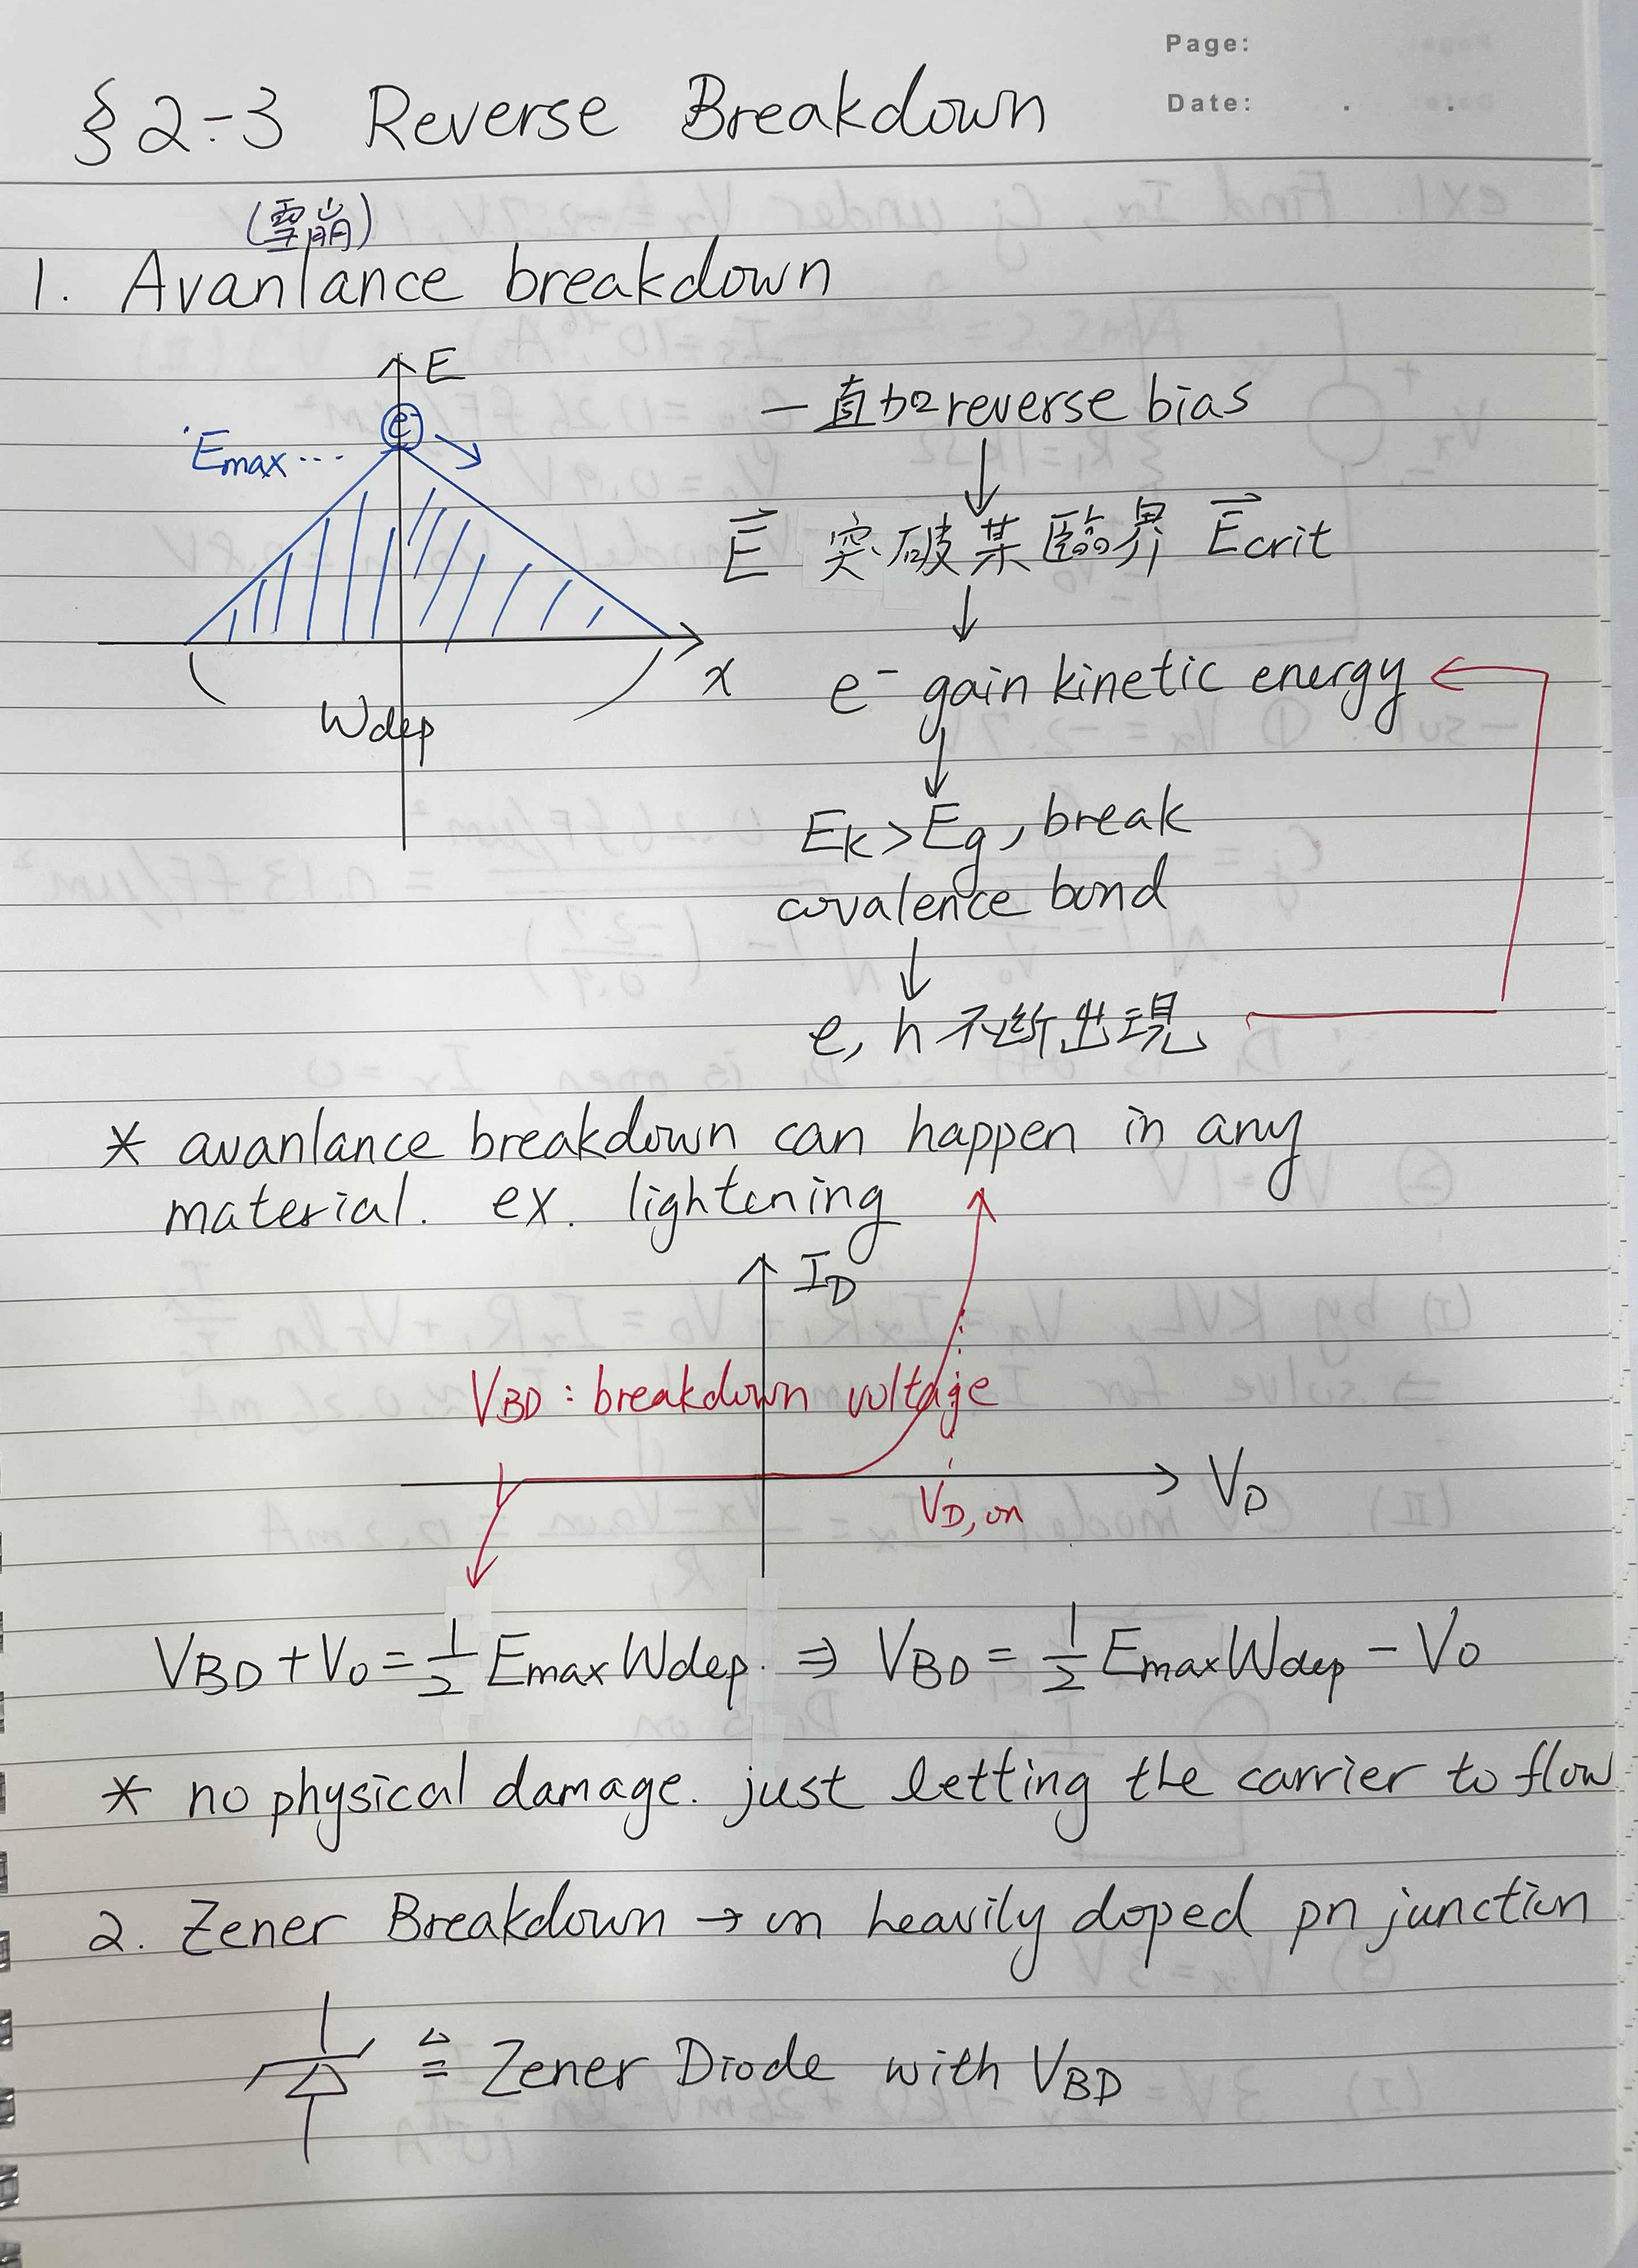 Page:
Date: . .
§ 2-3 Reverse Breakdown
(雪崩)
1. Avanlance breakdown
E
e⁻
Emax...
x
Wdep
一直加reverse bias
↓
E⃗ 突破某臨界 E⃗crit
↓
e⁻ gain kinetic energy
↓
EK>Eg, break
covalence bond
↓
e, h 不斷出現
* avanlance breakdown can happen in any
material. ex. lightening
ID
VBD : breakdown voltage
VD
VD,on
VBD+V0=½ EmaxWdep. ⇒ VBD=½ EmaxWdep-V0
* no physical damage. just letting the carrier to flow
2. Zener Breakdown → on heavily doped pn junction
≜ Zener Diode with VBD